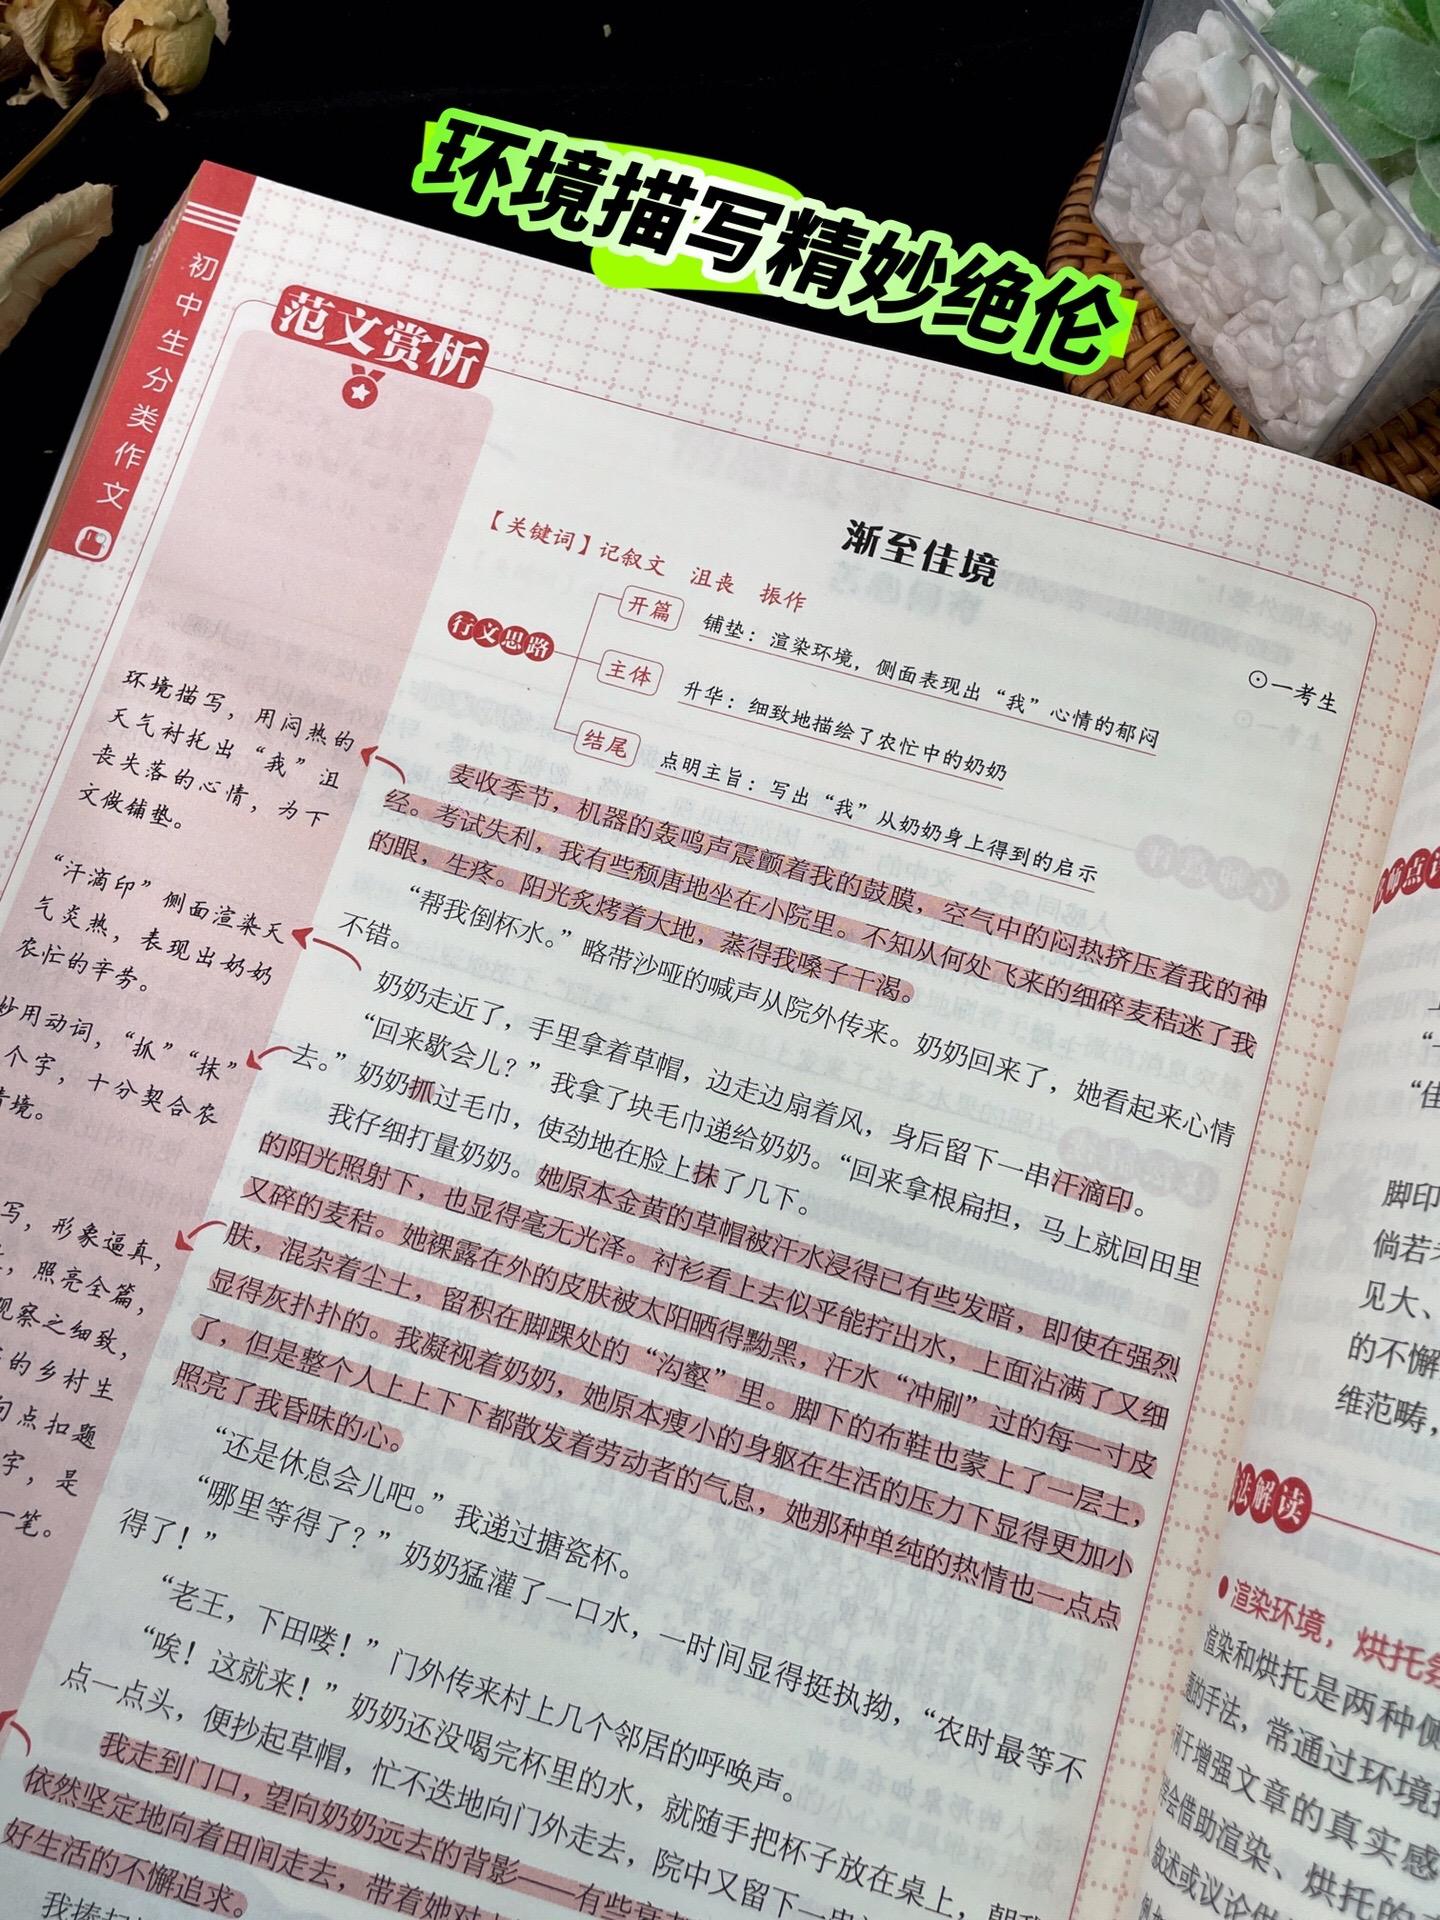 环境描写精妙绝伦
初中生分类作文
范文赏析
渐至佳境
【关键词】记叙文 沮丧 振作
⊙一考生
行文思路
开篇 铺垫：渲染环境，侧面表现出“我”心情的郁闷
主体 升华：细致地描绘了农忙中的奶奶
结尾 点明主旨：写出“我”从奶奶身上得到的启示
麦收季节，机器的轰鸣声震颤着我的鼓膜，空气中的闷热挤压着我的神
经。考试失利，我有些颓唐地坐在小院里。不知从何处飞来的细碎麦秸迷了我
的眼，生疼。阳光炙烤着大地，蒸得我嗓子干渴。
“帮我倒杯水。”略带沙哑的喊声从院外传来。奶奶回来了，她看起来心情
不错。
奶奶走近了，手里拿着草帽，边走边扇着风，身后留下一串汗滴印。
“回来歇会儿？”我拿了块毛巾递给奶奶。“回来拿根扁担，马上就回田里
去。”奶奶抓过毛巾，使劲地在脸上抹了几下。
我仔细打量奶奶。她原本金黄的草帽被汗水浸得已有些发暗，即使在强烈
的阳光照射下，也显得毫无光泽。衬衫看上去似乎能拧出水，上面沾满了又细
又碎的麦秸。她裸露在外的皮肤被太阳晒得黝黑，汗水“冲刷”过的每一寸皮
肤，混杂着尘土，留积在脚踝处的“沟壑”里。脚下的布鞋也蒙上了一层土，
显得灰扑扑的。我凝视着奶奶，她原本瘦小的身躯在生活的压力下显得更加小
了，但是整个人上上下下都散发着劳动者的气息，她那种单纯的热情也一点点
照亮了我昏昧的心。
“还是休息会儿吧。”我递过搪瓷杯。
“哪里等得了？”奶奶猛灌了一口水，一时间显得挺执拗，“农时最等不
得了！”
“老王，下田喽！”门外传来村上几个邻居的呼唤声。
“唉！这就来！”奶奶还没喝完杯里的水，就随手把杯子放在桌上，朝我
点一点头，便抄起草帽，忙不迭地向门外走去，院中又留下一串
我走到门口，望向奶奶远去的背影——有些
依然坚定地向着田间走去，带着她对
好生活的不懈追求。
我捧起
环境描写，用闷热的
天气衬托出“我”沮
丧失落的心情，为下
文做铺垫。
“汗滴印”侧面渲染天
气炎热，表现出奶奶
农忙的辛劳。
妙用动词，“抓”“抹”
个字，十分契合农
情境。
写，形象逼真，
，照亮全篇，
观察之细致，
的乡村生
句点扣题
字，是
一笔。
师点
“佳
脚印
倘若
见大、
的不懈
维范畴，
法解读
渲染环境，烘托
渲染和烘托是两种侧
的手法，常通过环境
利于增强文章的真实感
学会借助渲染、烘托的
叙述或议论